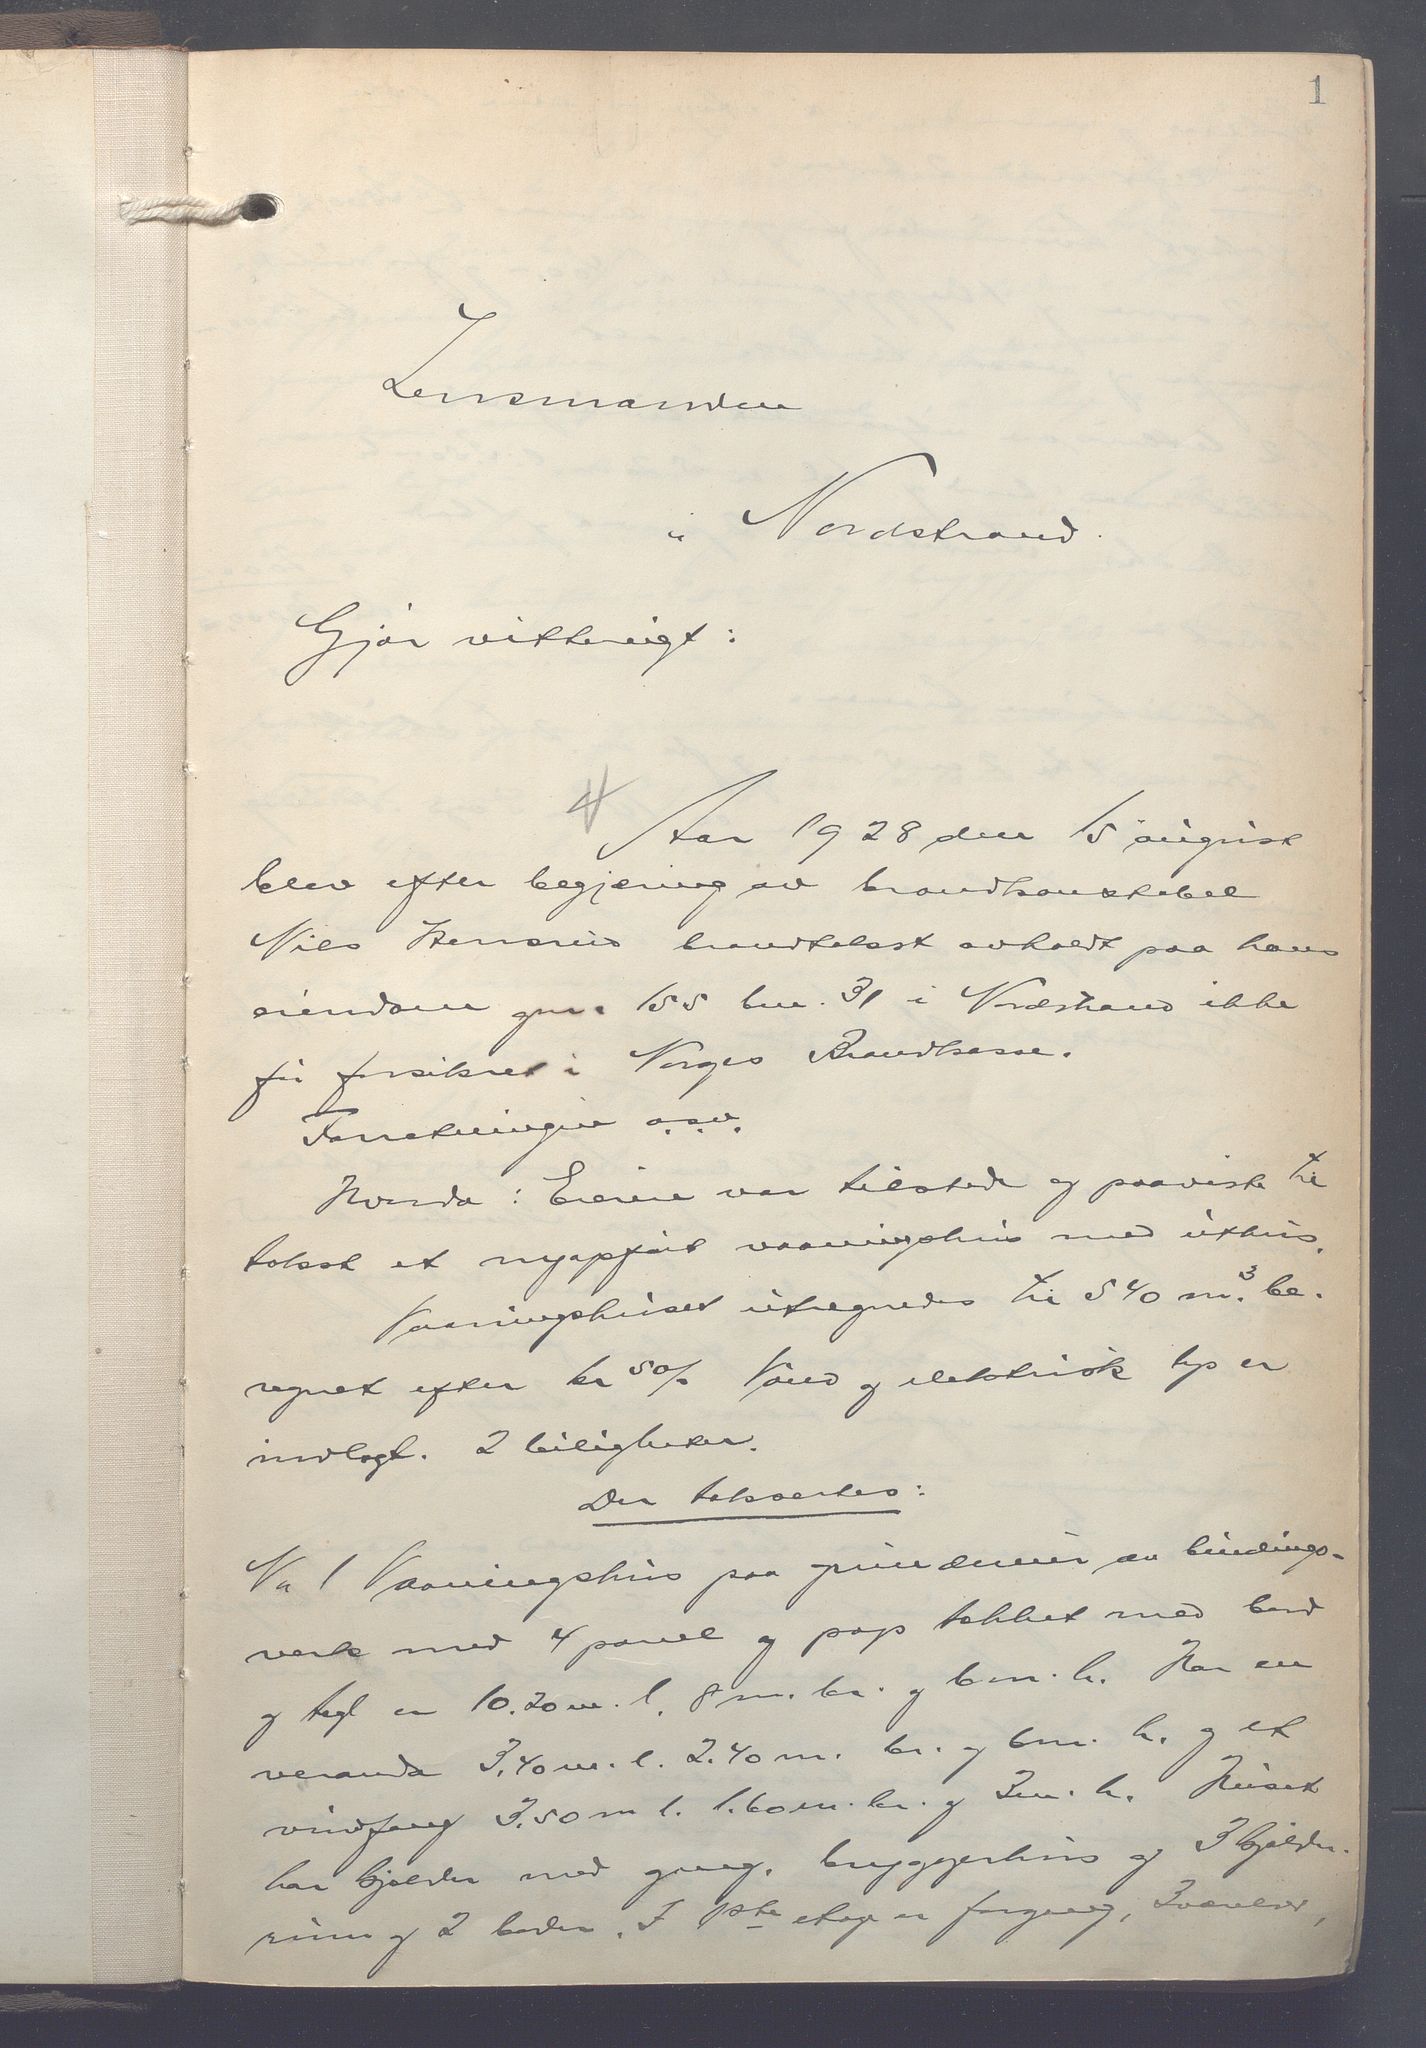 1
Lensmanden
i Nordstrand.
Gjør vitterligt:
Aar 1928 den 15 august
blev efter begjæring av brandkonstabel
Nils brandtakst avholdt paa hans
eiendom gnr. 155 bnr. 31 i Nordstrand ikke
før forsikret i Norges Brandkasse.
Forretningen o.s.v.
Hvorda: Eieren var tilstede og paaviste til
takst et nyopført vaaningshus med uthus.
Vaaningshuset utregnedes til 540 m.³ be-
regnet efter kr 50/. Vand og elektrisk lys er
indlagt. 2 leiligheter.
Der taksertes:
No 1 Vaaningshus paa grundmur av bindings-
verk med 4 panel og pap tækket med bord
og tegl er 10.20 m. l. 8 m. br. og 6 m. h. Har en
veranda 3.40 m. l. 2.40 m. br. og 6 m. h. og et
vindfang 3.50 m l. 1.60 m. br. og 3 m. h. Huset
har kjelder med gang, bryggerhus og 3 kjelder-
rum og 2 boder. I 1ste etage er forgang, 3 værelser,